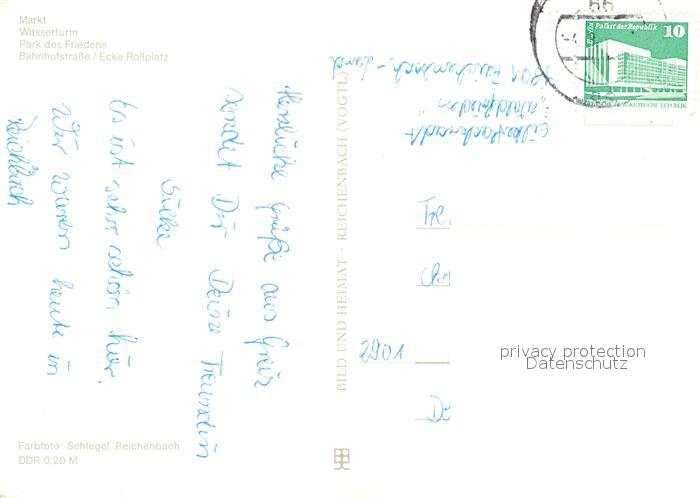 Markt
Wasserturm
Park des Friedens
Bahnhofstraße / Ecke Roßplatz
Herzliche Grüße aus Greiz
sendet Dir Deine Freundin
Silke
Es ist sehr schön hier.
Wir waren heute in
Reichbach
BILD UND HEIMAT · REICHENBACH (VOGTL)
Silke
"Waldfrieden"
9801
66
Palast der Republik 10
Fr
2901
privacy protection
Datenschutz
Farbfoto: Schlegel, Reichenbach
DDR 0,20 M